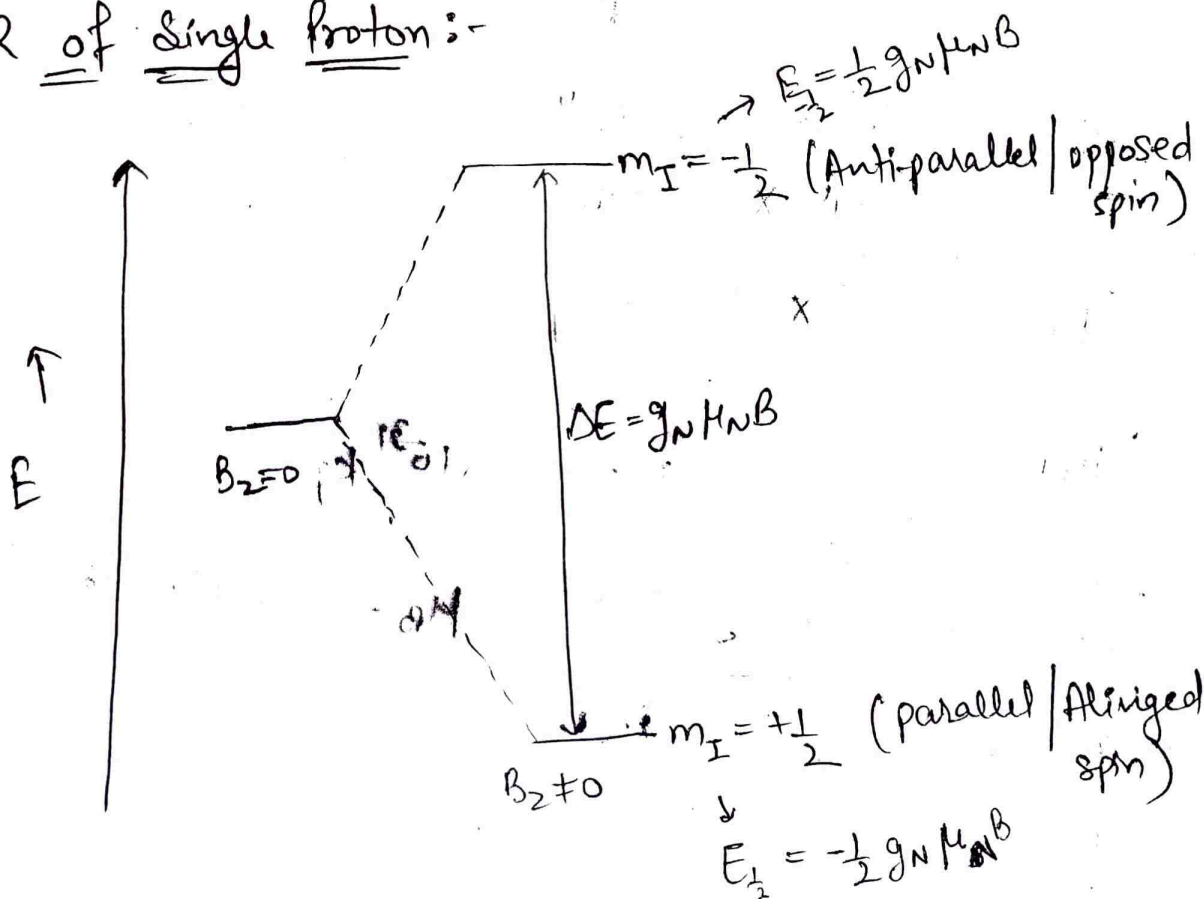 R of Single Proton :-
→ E_{-1/2} = 1/2 g_N μ_N B
m_I = -1/2 (Anti-parallel | opposed
spin)
x
↑
E
B_z=0
ΔE = g_N μ_N B
m_I = +1/2 (parallel | Alinged
spin)
B_z≠0
↓
E_{1/2} = -1/2 g_N μ_N B